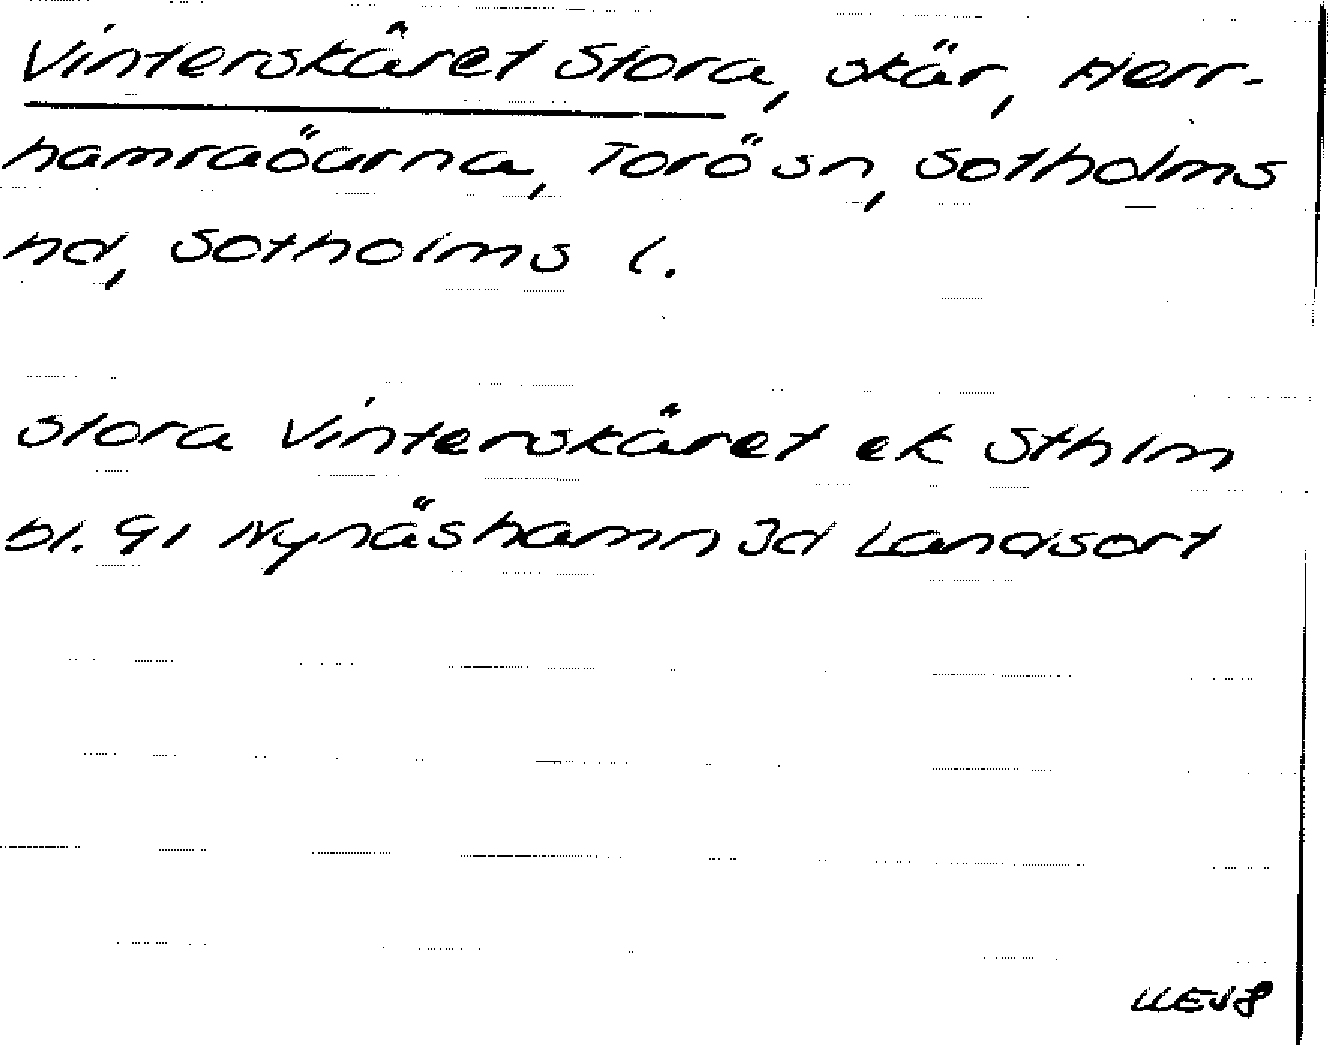 Vinterskäret Stora, skär, Herr-
hamraöarna, Torö sn, Sotholms
hd, Sotholms l.
Stora Vinterskäret ek Sthlm
bl. 91 Nynäshamn Jd Landsort